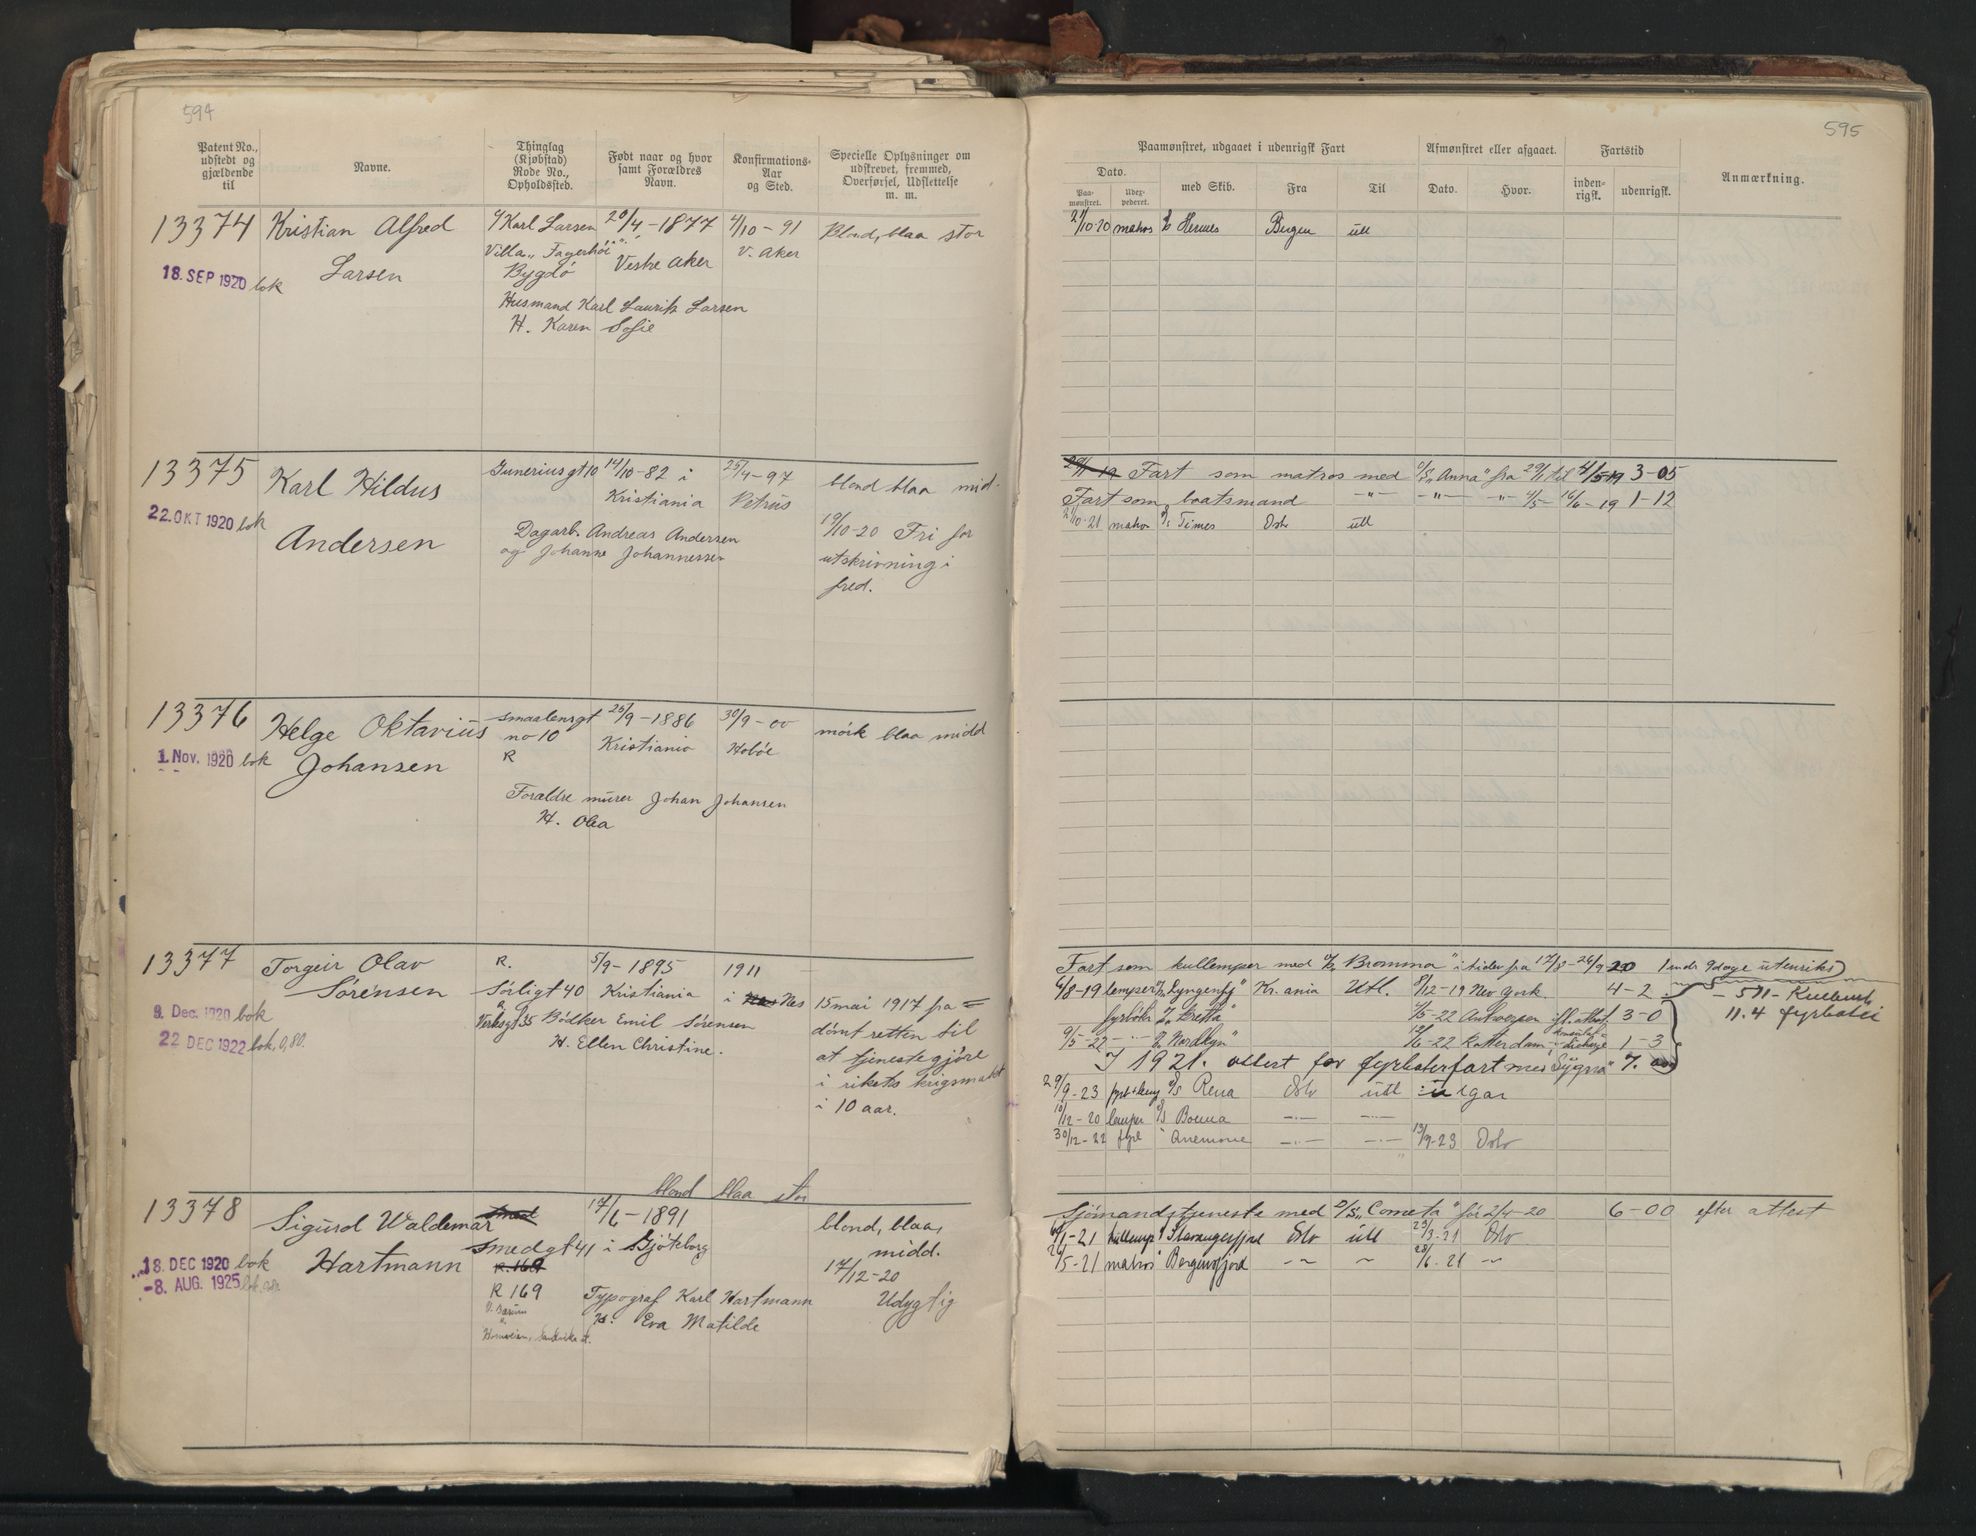 594
Patent No., udstedt og gjældende til
Navne.
Thinglag (Kjøbstad) Rode No., Opholdssted.
Født naar og hvor samt Forældres Navn.
Konfirmations-Aar og Sted.
Specielle Oplysninger om udskrevet, fremmed, Overførsel, Udslettelse m. m.
13374 Kristian Alfred 
Larsen
18. SEP 1920 bok
Karl Larsen
Villa "Fagerhöi"
Bygdö
20/4-1877
Vestre Aker
4/10-91
V. Aker
Blond, blaa stor
Husmand Karl Lauritz Larsen
H. Karen Sofie
13375 Karl Hildus
Andersen
22. OKT 1920 bok
Gunerius gt 10
14/10-82 i
Kristiania
25/4-97
Petrus
blond blaa mid.
19/10-20 Fri for
utskrivning i
fred.
Dagarb. Andreas Andersen
og Johanne Johannessen
13376 Helge Oktavius
Johansen
1. Nov. 1920 bok
Smaalensgt
no 10
R
25/9-1886
Kristiania
30/9-00
Hobøl
mörk blaa midd
Forældre murer Johan Johansen
H. Olea
13377 Torgeir Olav
Sörensen
9. Dec. 1920 bok
22 DEC 1922 bok, 0,80.
R.
Sörligt 40
Verksgt 35
5/9-1895
Kristiania
1911
i Nes
Bödker Emil Sörensen
H. Ellen Christine.
15 mai 1917 fra =
dömt retten til
at tjenestegjöre
i rikets krigsmakt
i 10 aar.
blond blaa stor
13378 Sigurd Waldemar
Hartmann
18. DEC 1920 bok
-8. AUG. 1925 bok
Smedgt 41
R. 169
R 169
17/6-1891
i Gjöteborg
Typograf Karl Hartmann
H. Eva Matilde
blond, blaa,
midd.
17/12-20
Udygtig
595
Paamønstret, udgaaet i udenrigsk Fart
Afmønstret eller afgaaet.
Fartstid
Anmærkning.
Dato.
Paamønstret.
med Skib.
Fra
Til
Dato.
Hvor.
indenrigsk.
udenrigsk.
10-20 matros Hermes Bergen utl
Fart som matros med "Anna" fra 29/1 til 4/5-19 3-05
Fart som baatsmand -"- -"- " 4/5-16/6-19 1-12
10-21 matros Times Oslo utl
Fart som kullemper med "Bromma" i tiden fra 17/8-26/9-20 1 mdr 9 dage utenriks
6/8-19 lemper "Lyngenfj" Kr.ania Utl. 8/12-19 New York. 4-2
fyrbött "Gretta" 4/5-22 Antwerpen 3-0
- 5/11 - Kullemp
11.4 fyrböter
9/5-22 -"- "Nordkyn" 12/6-22 Rotterdam 1-3
I 1921. attest for fyrböterfart med "Sygna" 7.
29/9-23 Rena Oslo utl utgar
10/12-20 lemper Bonna -"- -"-
30/12-22 fyrb Anemone -"- -"- 13/9-23 Oslo
Sjömandstjeneste med D/S "Cometa" för 2/4-20 6-00 efter attest
1-21 kullemp Stavangerfjord Oslo utl 23/3-21 Oslo
26/5-21 matros Bergensfjord -"- " 28/6-21 -"-